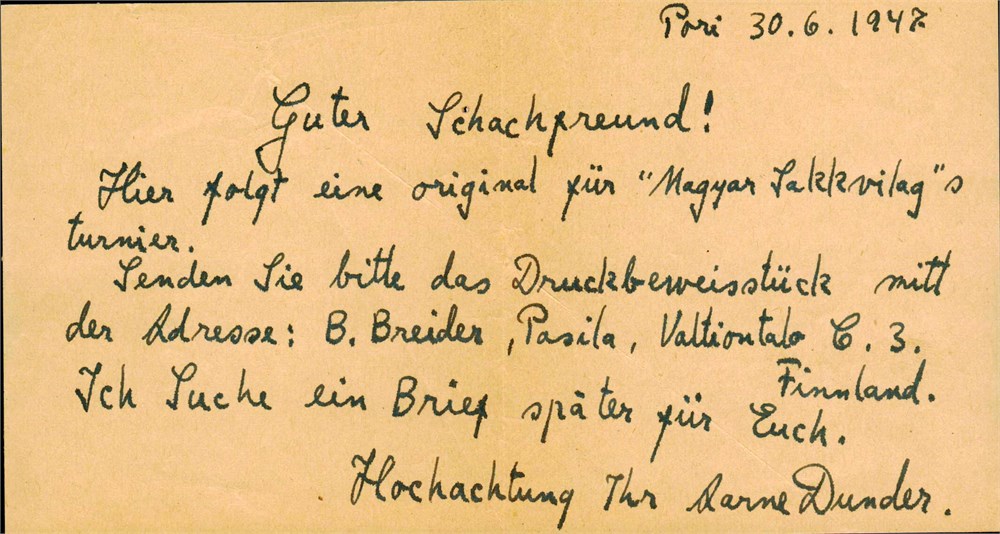 Pori 30.6.1947.
Guter Schachfreund!
Hier folgt eine original für "Magyar Sakkvilag"s
turnier.
Senden Sie bitte das Druckbeweisstück mitt
der Adresse: B. Breider, Pasila, Valtiontalo C. 3.
Finnland.
Ich Suche ein Brief später für Euch.
Hochachtung Ihr Aarne Dunder.